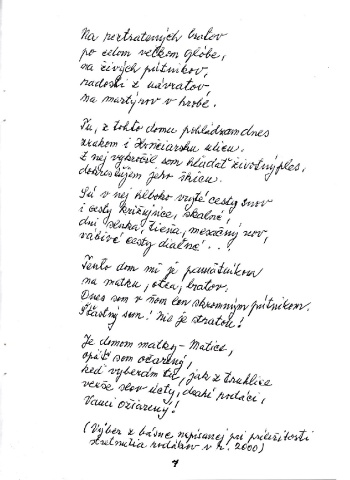 Na roztratených bratov
po celom veľkom glóbe,
na živých pútnikov,
radosti z návratov,
na martýrov v hrobe.

Tu, z tohto domu pohládzam dnes
zrakom i Hrnčiarsku ulicu.
Z nej vykročil som hľadať životný ples,
dokresľujem jeho skicu.

Sú v nej hlboko vryté cesty snov
i cesty krížujúce, skalné,
dní slnka, tieňa, mesačný nov,
vábivé cesty diaľné...!

Tento dom mi je pamätníkom
na matku, otca, bratov.
Dnes som v ňom len skromným pútnikom.
Šťastný som! Nie je stratou!

Je domom matky - Matice,
opäť som očarený,
keď vyberám tu, jak z truhlice
verše slov úcty, drahí rodáci,
Vami ožiarený!

(Výber z básne napísanej pri príležitosti
stretnutia rodákov v r. 2000)

7